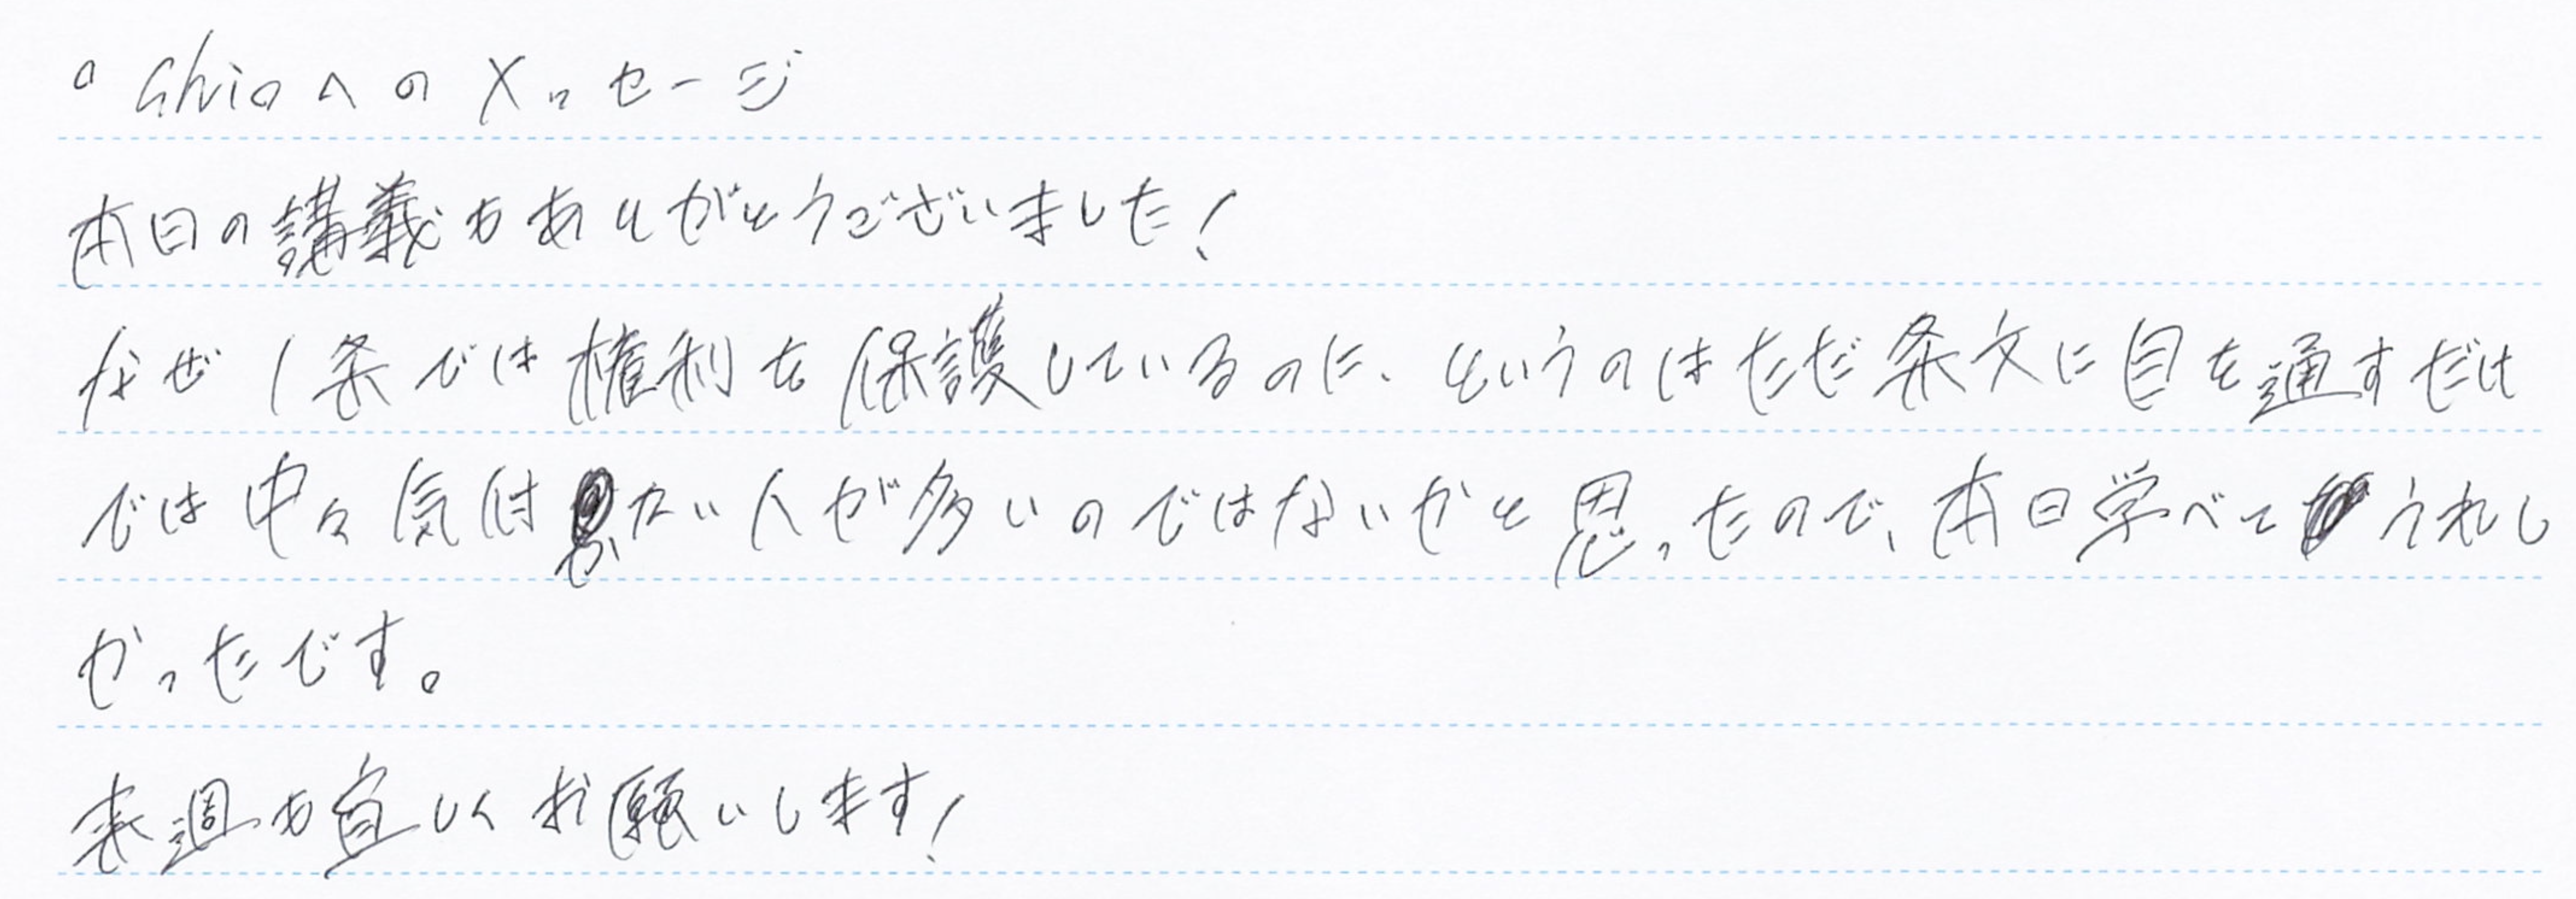 。Ghioへのメッセージ
本日の講義もありがとうございました!
なぜ1条では権利を保護しているのに、というのはただ条文に目を通すだけ
では中々気付かない人が多いのではないかと思ったので、本日学べてうれし
かったです。
来週も宜しくお願いします!